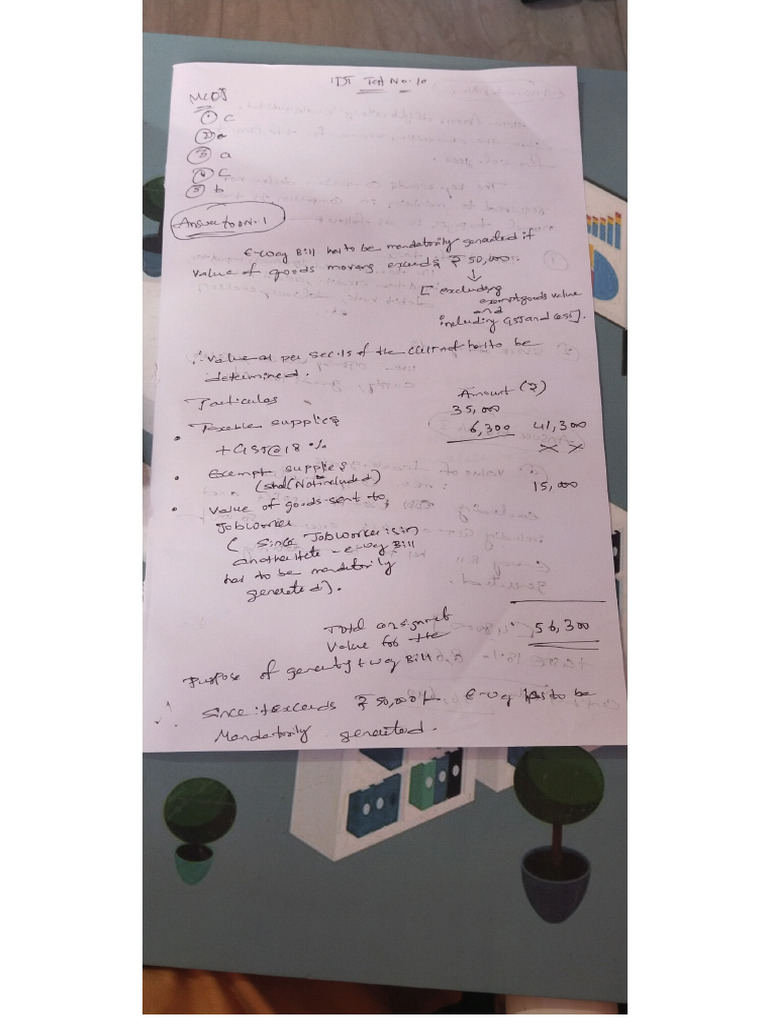 IDT Test No. 10
MCQS
① c
② a
③ a
④ C
⑤ b
Answer to QN.1
E-way Bill has to be mandatorily generated if
value of goods moving exceeds ₹ 50,000.
↓
[ excluding
exempt goods value
and
including GST and cess].
∴ Value as per sec.15 of the CGST Act has to be
determined.
Particulas Amount (₹)
• Taxable supplies 35,000
+ GST@18% 6,300 41,300
• Exempt supplies x x
(Not included)
• Value of goods sent to 15,000
Jobworker
( Since Jobworker is in
another state - e-way Bill
has to be mandatorily
generated).
Total consignment 56,300
Value for the
Purpose of generating E way Bill
∴ Since it exceeds ₹ 50,000/- E-way has to be
Mandatorily generated.